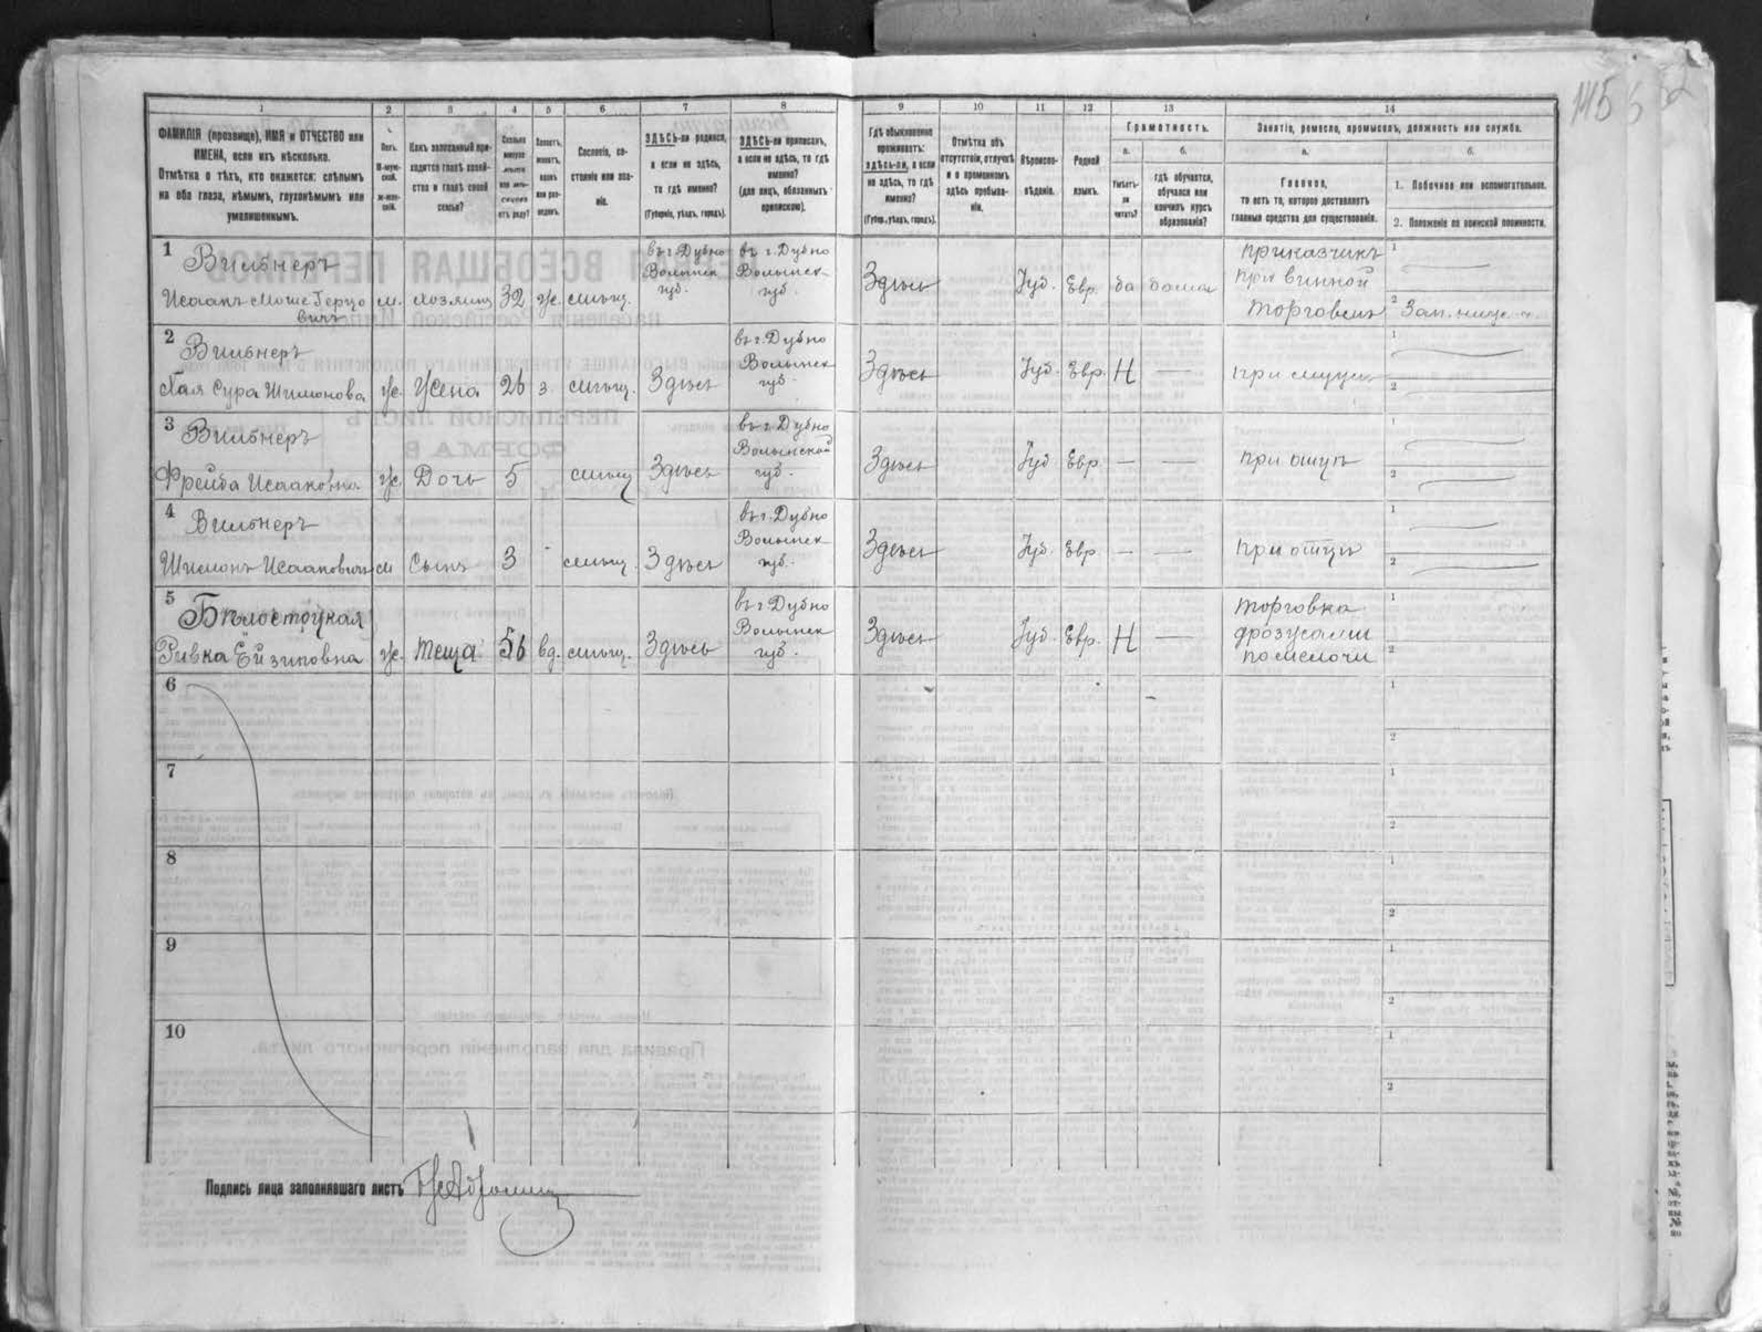 1 2 3 4 5 6 7 8 9 10 11 12 13 14
ФАМИЛІЯ (прозвище), ИМЯ и ОТЧЕСТВО или
ИМЕНА, если ихъ нѣсколько.
Отмѣтка о тѣхъ, кто окажется: слѣпымъ
на оба глаза, нѣмымъ, глухонѣмымъ или
умалишеннымъ.
Полъ.
М-муж-
ской.
Ж-жен-
скій.
Какъ записанный при-
ходится главѣ хозяй-
ства и главѣ своей
семьи?
Сколько
минуло
лѣтъ
или мѣ-
сяцевъ
отъ роду?
Холостъ,
женатъ,
вдовъ
или раз-
веденъ.
Сословіе, со-
стояніе или зва-
ніе.
ЗДѢСЬ-ли родился,
а если не здѣсь,
то гдѣ именно?
(Губернія, уѣздъ, городъ).
ЗДѢСЬ-ли приписанъ,
а если не здѣсь, то гдѣ
именно?
(для лицъ, обязанныхъ
припискою).
Гдѣ обыкновенно
проживаетъ:
здѣсь-ли, а если
не здѣсь, то гдѣ
именно?
(Губер., уѣздъ, городъ).
Отмѣтка объ
отсутствіи, отлучкѣ
и о временномъ
здѣсь пребыва-
ніи.
Вѣроиспо-
вѣданіе.
Родной
языкъ.
Грамотность.
а.
Умѣетъ-
ли
читать?
б.
гдѣ обучается,
обучался или
кончилъ курсъ
образованія?
Занятіе, ремесло, промыселъ, должность или служба.
а.
Главное,
то есть то, которое доставляетъ
главныя средства для существованія.
б.
1. Побочное или вспомогательное.
2. Положеніе по воинской повинности.
1 Вильнеръ
Исаакъ Моше Герцо
вичъ м. хозяинъ 32 ж. мѣщ.
въ г. Дубно
Волынск
губ.
въ г. Дубно
Волынск
губ.
Здѣсь Іуд. Евр. да дома
Приказчикъ
при винной
торговлѣ
1
2
2 Вильнеръ
Хая Сура Шимонова ж. Жена 26 з. мѣщ. Здѣсь
въ г. Дубно
Волынск
губ.
Здѣсь Іуд. Евр. Н — при мужѣ
1
2
3 Вильнеръ
Фрейда Исааковна ж. Дочь 5 мѣщ Здѣсь
въ г. Дубно
Волынской
губ.
Здѣсь Іуд Евр — — при отцѣ
1
2
4 Вильнеръ
Шимонъ Исааковичъ м Сынъ 3 мѣщ. Здѣсь
въ г. Дубно
Волынск
губ.
Здѣсь Іуд. Евр — — при отцѣ
1
2
5 Бѣлостоцкая
Ривка Ейзиковна ж. теща 56 вд. мѣщ. Здѣсь
въ г. Дубно
Волынск
губ.
Здѣсь Іуд. Евр. Н —
торговка
дрожжами
по мелочи
1
2
6 1
2
7 1
2
8 1
2
9 1
2
10 1
2
Подпись лица заполнявшаго листъ